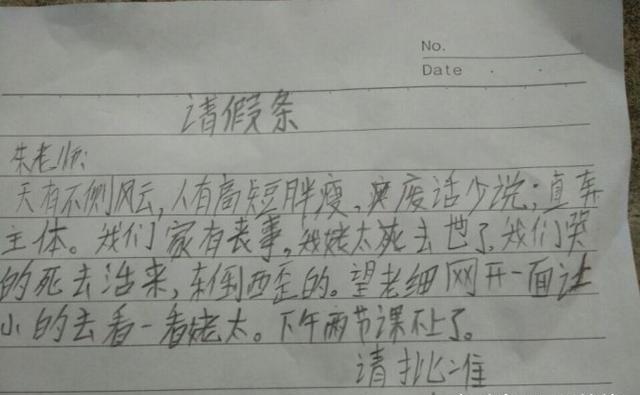 No.
Date
请假条
朱老师:
天有不侧风云,人有高短胖瘦,废话少说;直奔
主体。我们家有丧事,我姥太死去世了,我们哭
的死去活来,东倒西歪的。望老细网开一面让
小的去看一看姥太。下午两节课不上了。
请批准